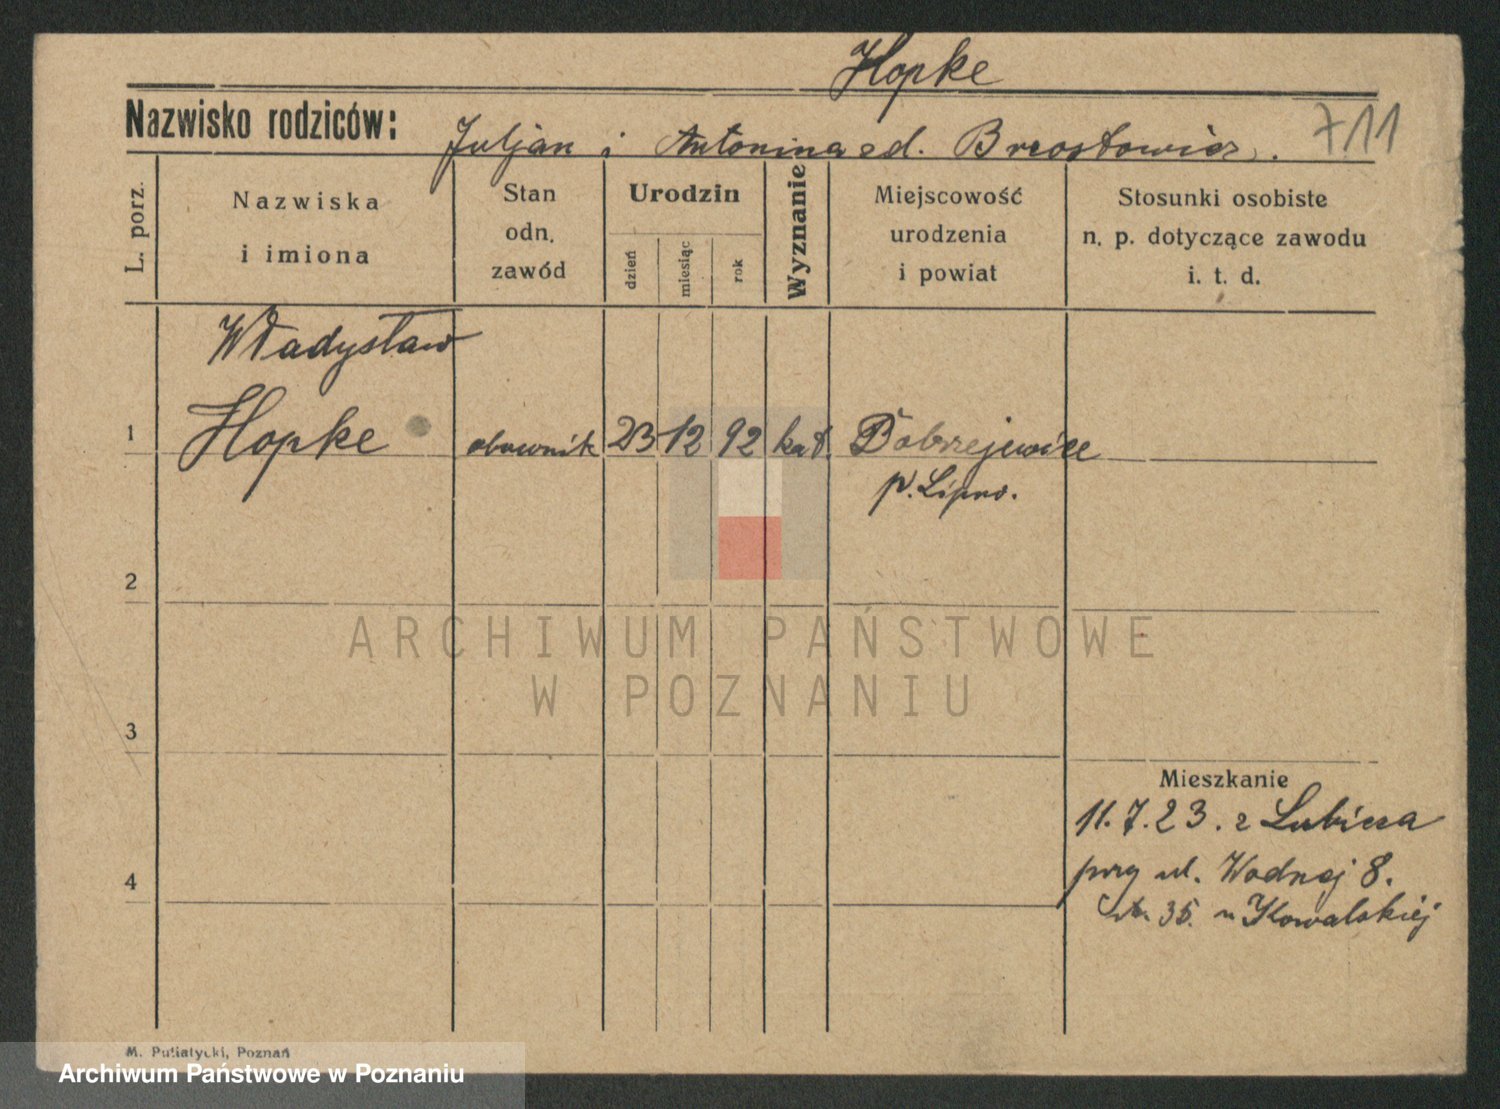 Hopke
Nazwisko rodziców: Juljan i Antonina zd. Brzostowicz. 711
L. porz.
Nazwiska i imiona
Stan odn. zawód
Urodzin
dzień
miesiąc
rok
Wyznanie
Miejscowość urodzenia i powiat
Stosunki osobiste n. p. dotyczące zawodu i. t. d.
Władysław
1 Hopke obuwnik 23 12 92 kat. Dobrzejewice
p. Lipno.
2
ARCHIWUM PAŃSTWOWE
W POZNANIU
3
Mieszkanie
11.7.23. z Lubicza
przy ul. Wodnej 8.
4
35. u Kowalskiej
M. Putiatycki, Poznań
Archiwum Państwowe w Poznaniu